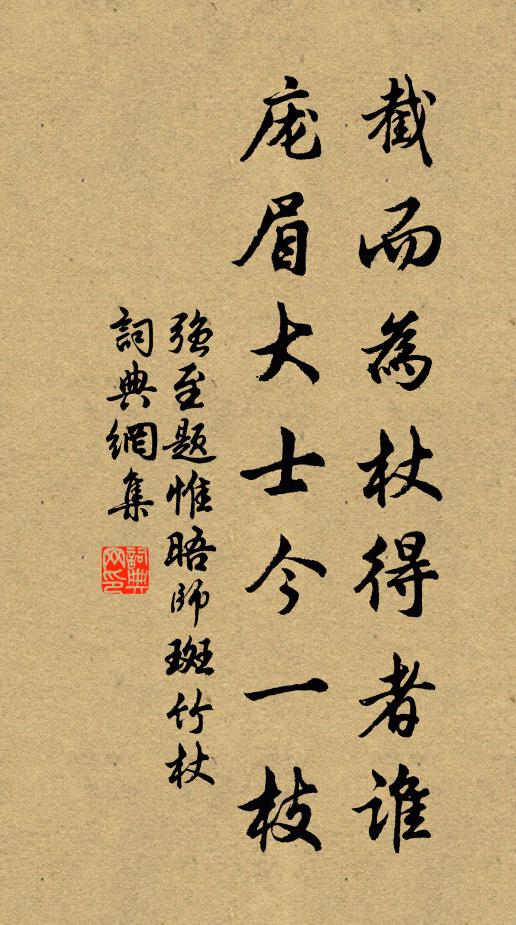 截而為杖得者誰
庞眉大士今一枝
強至題惟晤師斑竹杖
詞典網集
詞典网印